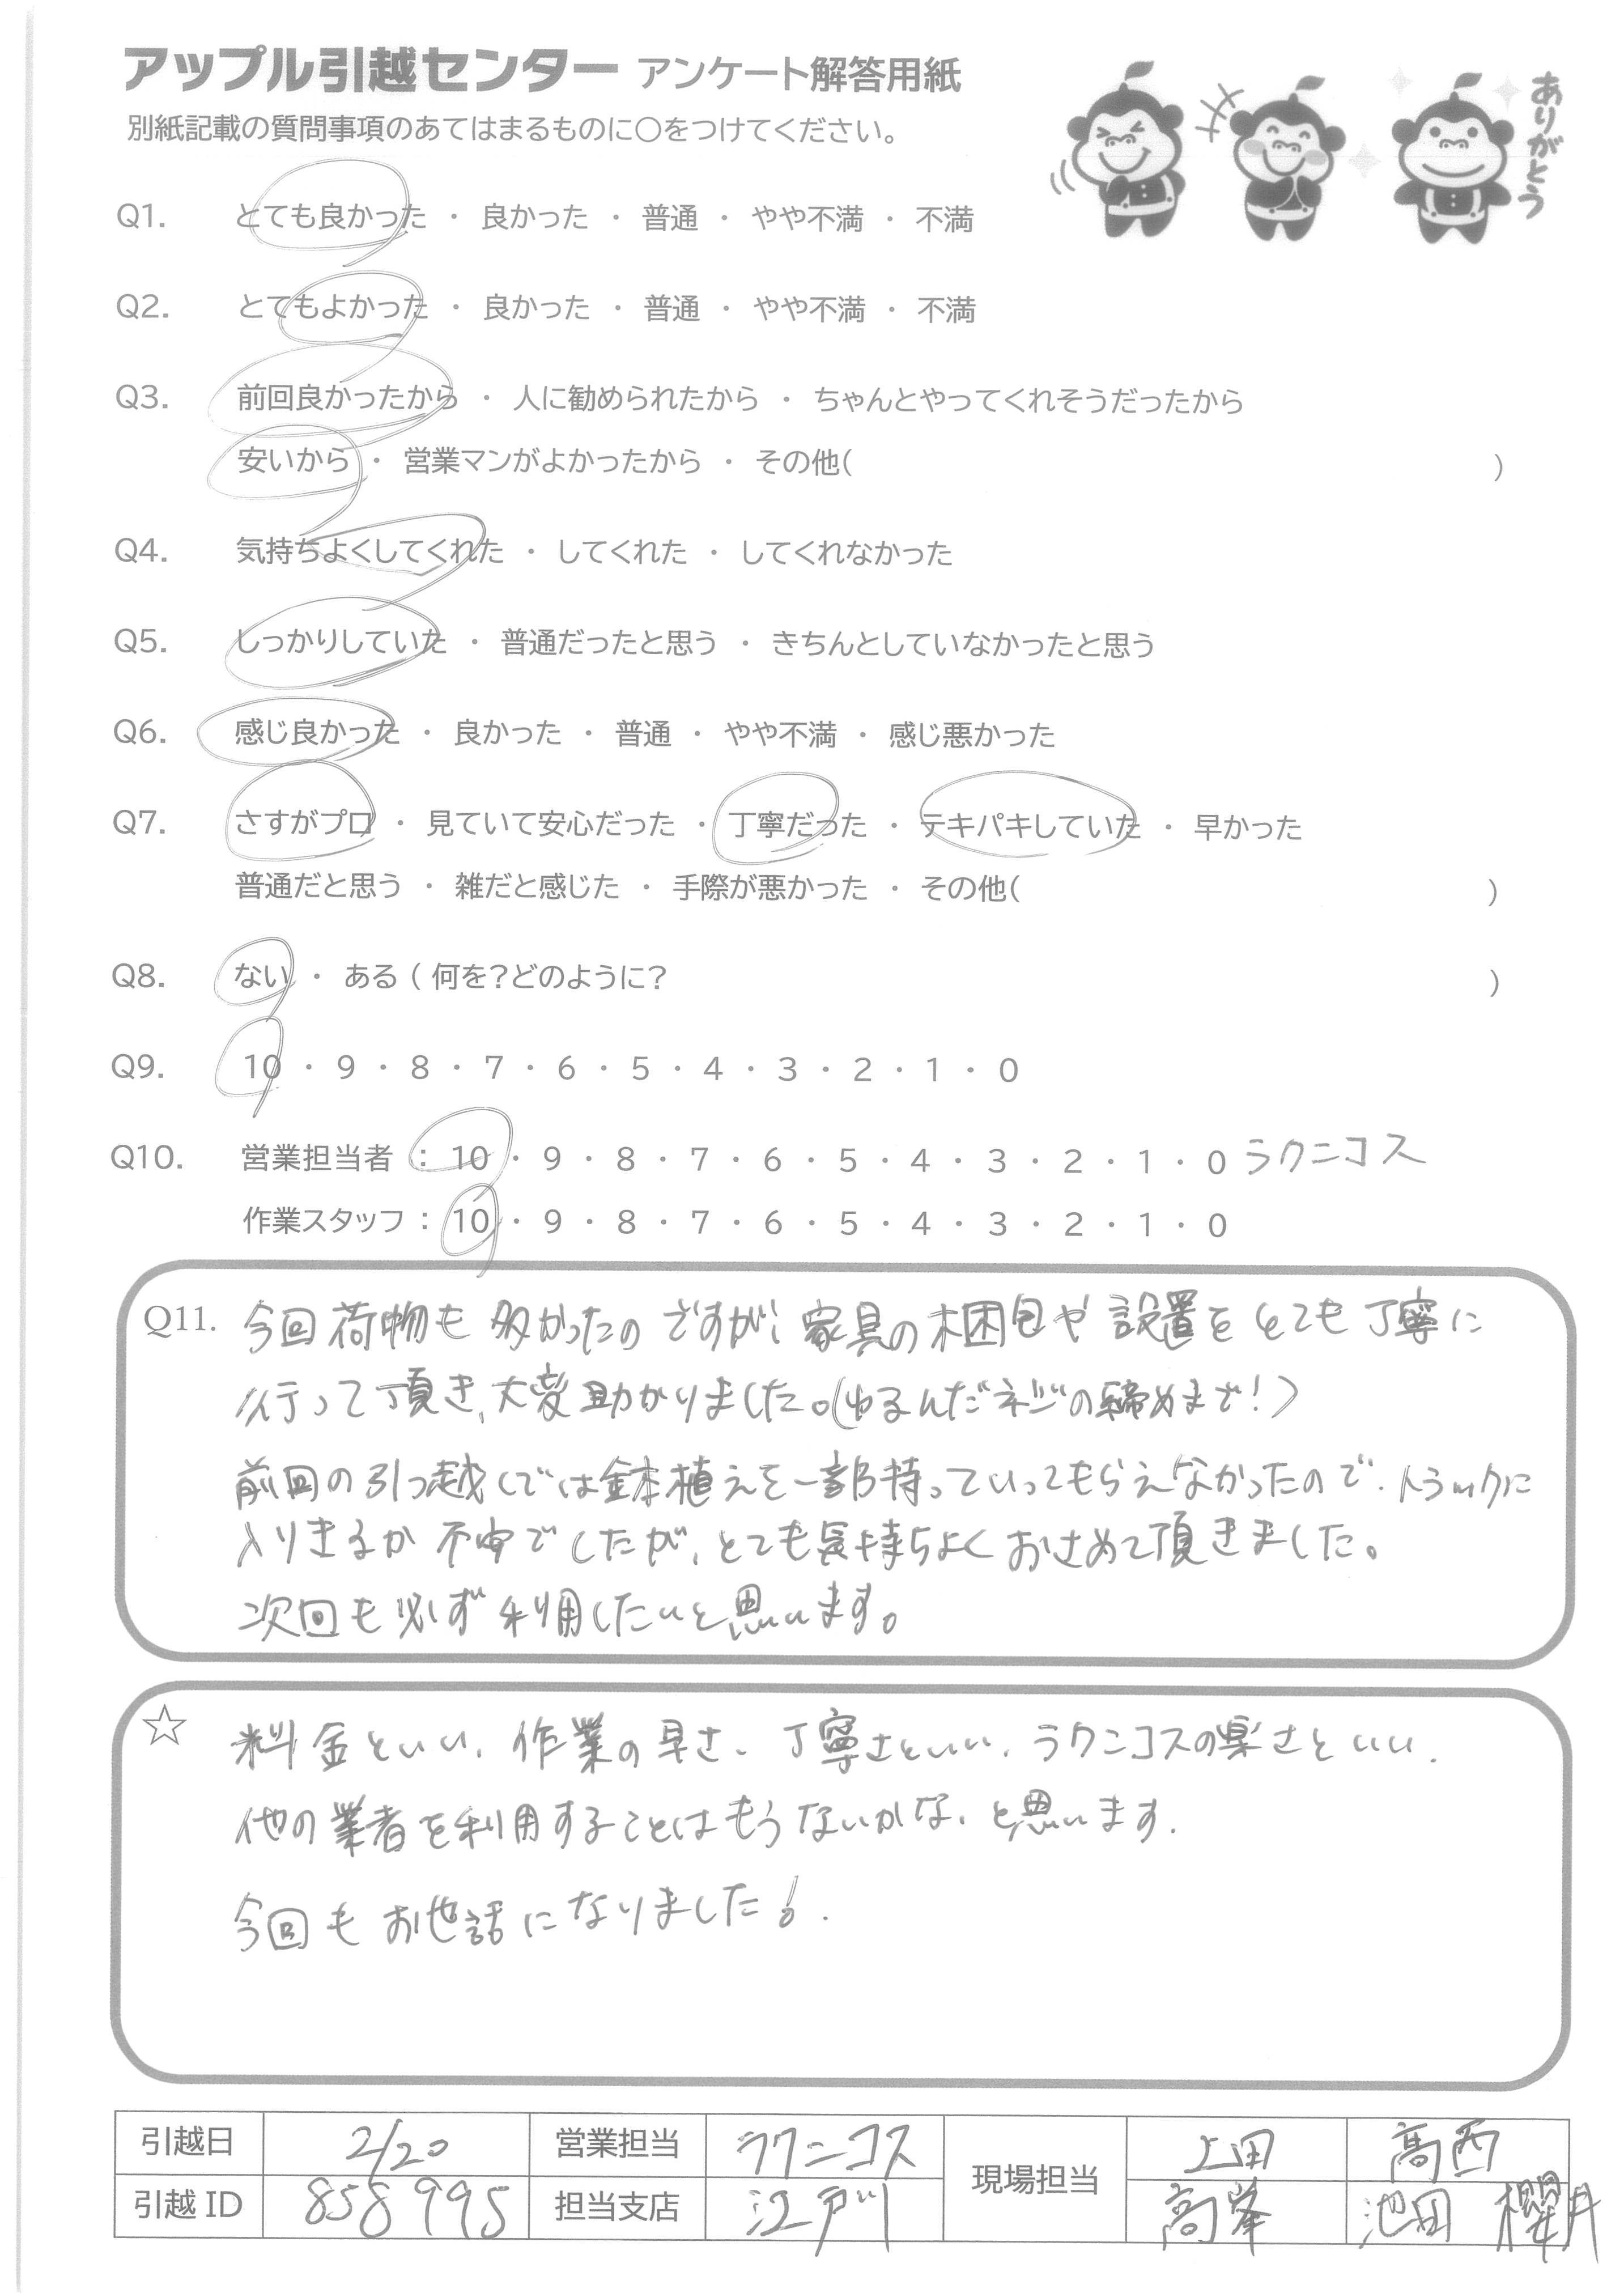 アップル引越センター アンケート解答用紙
別紙記載の質問事項のあてはまるものに○をつけてください。
ありがとう
Q1. とても良かった ・ 良かった ・ 普通 ・ やや不満 ・ 不満
Q2. とてもよかった ・ 良かった ・ 普通 ・ やや不満 ・ 不満
Q3. 前回良かったから ・ 人に勧められたから ・ ちゃんとやってくれそうだったから
安いから ・ 営業マンがよかったから ・ その他( )
Q4. 気持ちよくしてくれた ・ してくれた ・ してくれなかった
Q5. しっかりしていた ・ 普通だったと思う ・ きちんとしていなかったと思う
Q6. 感じ良かった ・ 良かった ・ 普通 ・ やや不満 ・ 感じ悪かった
Q7. さすがプロ ・ 見ていて安心だった ・ 丁寧だった ・ テキパキしていた ・ 早かった
普通だと思う ・ 雑だと感じた ・ 手際が悪かった ・ その他( )
Q8. ない ・ ある ( 何を?どのように? )
Q9. 10 ・ 9 ・ 8 ・ 7 ・ 6 ・ 5 ・ 4 ・ 3 ・ 2 ・ 1 ・ 0
Q10. 営業担当者 : 10 ・ 9 ・ 8 ・ 7 ・ 6 ・ 5 ・ 4 ・ 3 ・ 2 ・ 1 ・ 0 ラクニコス
作業スタッフ : 10 ・ 9 ・ 8 ・ 7 ・ 6 ・ 5 ・ 4 ・ 3 ・ 2 ・ 1 ・ 0
Q11. 今回荷物も多かったのですが、家具の梱包や設置をとても丁寧に
行って頂き、大変助かりました。(ゆるんだネジの締めまで!)
前回の引っ越しでは鉢植えを一部持っていってもらえなかったので、トラックに
入りきるか不安でしたが、とても気持ちよくおさめて頂きました。
次回も必ず利用したいと思います。
☆ 料金といい、作業の早さ、丁寧さといい、ラクニコスの楽さといい、
他の業者を利用することはもうないかな、と思います.
今回もお世話になりました!.
引越日 2/20 営業担当 ラクニコス 現場担当 上田 高西
引越ID 858995 担当支店 江戸川 高峯 池田 櫻井